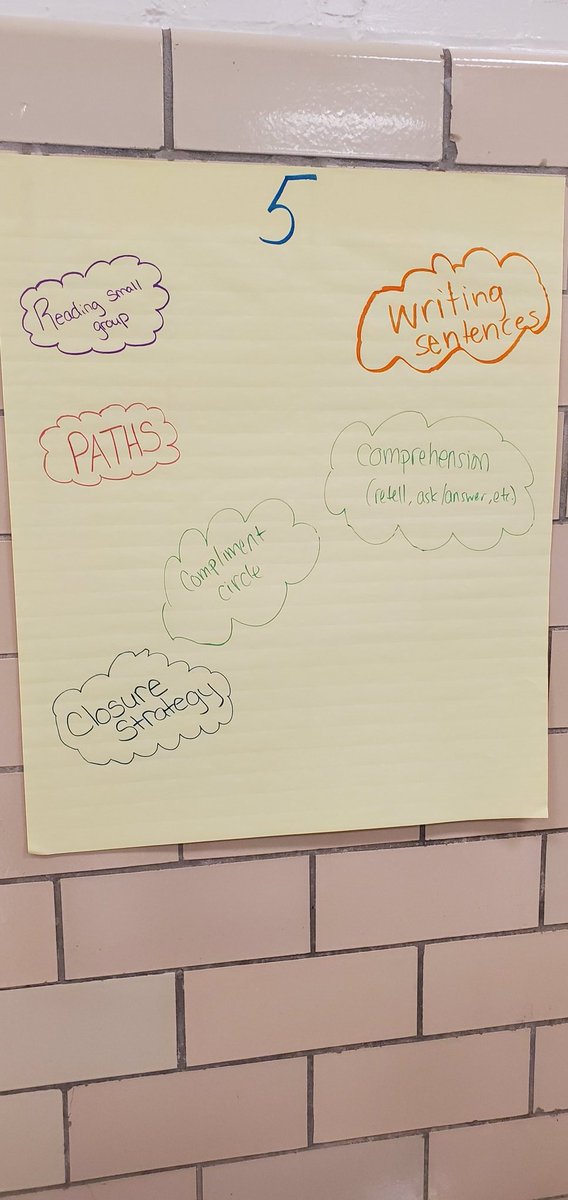 5
Reading small
group
Writing
sentences
PATHS
Comprehension
(retell, ask/answer, etc.)
Compliment
circle
Closure
Strategy